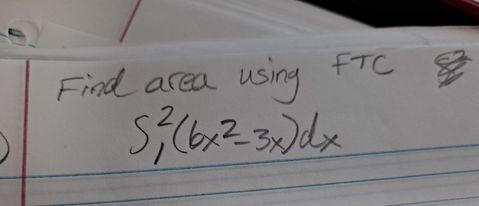 Find area using FTC
∫₁²(6x²-3x)dx